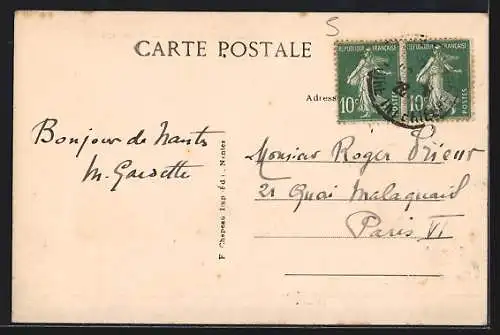 S
CARTE POSTALE
REPUBLIQUE FRANÇAISE
10c
POSTES
REPUBLIQUE FRANÇAISE
10c
POSTES
Adress
Bonjour de Nantes
M. Gardette
Monsieur Roger Prieur
21 Quai Malaquais
Paris VI
F. Chapeau Imp. Éd., Nantes